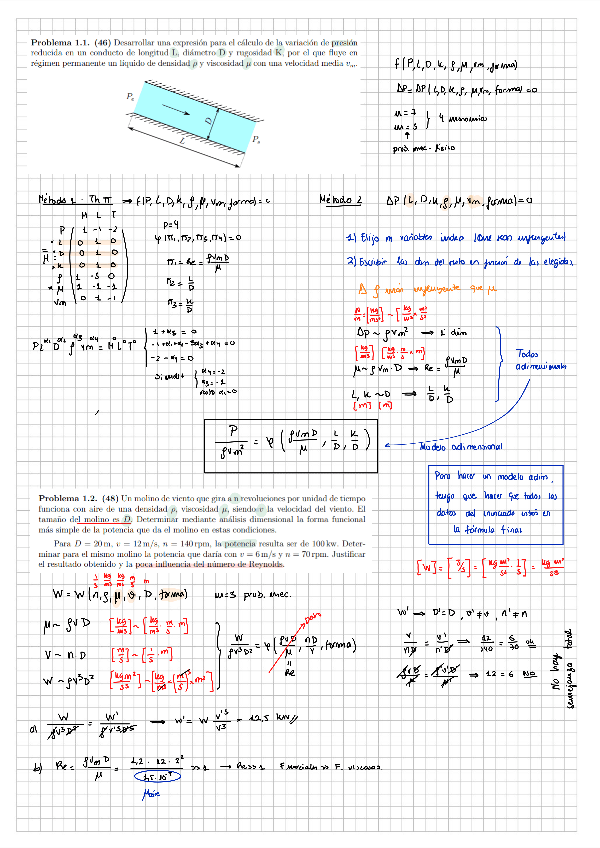 Problema 1.1. (46) Desarrollar una expresión para el cálculo de la variación de presión
reducida en un conducto de longitud L, diámetro D y rugosidad K, por el que fluye en
régimen permanente un líquido de densidad ρ y viscosidad μ con una velocidad media vₘ.
D
L
f(P, L, D, K, ρ, μ, vm, forma)
ΔP = ΔP(L, D, K, ρ, μ, vm, forma) = 0
4 monomios
Método 1 - Th π → f(P, L, D, K, ρ, μ, vm, forma) = 0
M L T
P 1 -1 -2
L 0 1 0
D 0 1 0
K 0 1 0
ρ 1 -3 0
μ 1 -1 -1
vm 0 1 -1
p=4
φ(π1, π2, π3, π4) = 0
π1 = Re = ρvmD/μ
π2 = L/D
π3 = K/D
Método 2 ΔP(L, D, K, ρ, μ, vm, forma) = 0
1) Elijo m variables indep (que sean influyentes)
2) Escribir las dim del resto en función de las elegidas
Δ ρ más influyente que μ
ΔP ~ ρvm²
μ ~ ρvm·D → Re = ρvmD/μ
L, K ~ D → L/D, K/D
[m] [m]
Todos
adimensionales
P/ρvm² = φ(ρvmD/μ, L/D, K/D)
Modelo adimensional
Para hacer un modelo adim,
tengo que hacer que todos los
datos del enunciado estén en
la fórmula final
Problema 1.2. (48) Un molino de viento que gira a n revoluciones por unidad de tiempo
funciona con aire de una densidad ρ, viscosidad μ, siendo v la velocidad del viento. El
tamaño del molino es D. Determinar mediante análisis dimensional la forma funcional
más simple de la potencia que da el molino en estas condiciones.
Para D = 20 m, v = 12 m/s, n = 140 rpm, la potencia resulta ser de 100 kw. Deter-
minar para el mismo molino la potencia que daría con v = 6 m/s y n = 70 rpm. Justificar
el resultado obtenido y la poca influencia del número de Reynolds.
[W] = [J/s] = [kg m²/s² · 1/s] = kg m²/s³
W = W(n, ρ, μ, v, D, forma) m=3 prob. mec.
μ ~ ρvD
v ~ nD
W ~ ρv³D²
W/ρv³D² = φ(ρvD/μ, nD/v, forma)
Re
W' → D'=D, v'≠v, n'≠n
v/nD = v'/n'D' → 12/140 = 6/70 ok
→ 12 = 6 NO
No hay
semejanza total
a) W/ρv³D² = W'/ρ'v'³D'² → W' = W v'³/v³ = 12,5 kW
b) Re = ρvmD/μ
>>1 → Re>>1 F inerciales >> F. viscosas
μaire